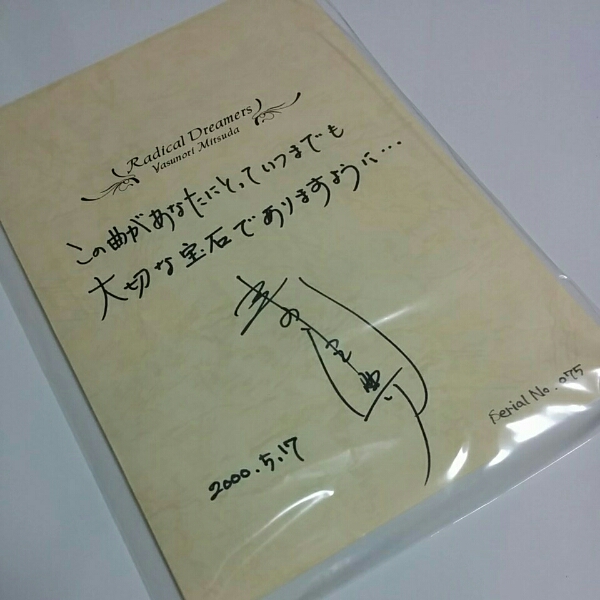 Radical Dreamers
Yasunori Mitsuda
この曲があなたにとっていつまでも
大切な宝石でありますように…
2000.5.17
Serial No. 075